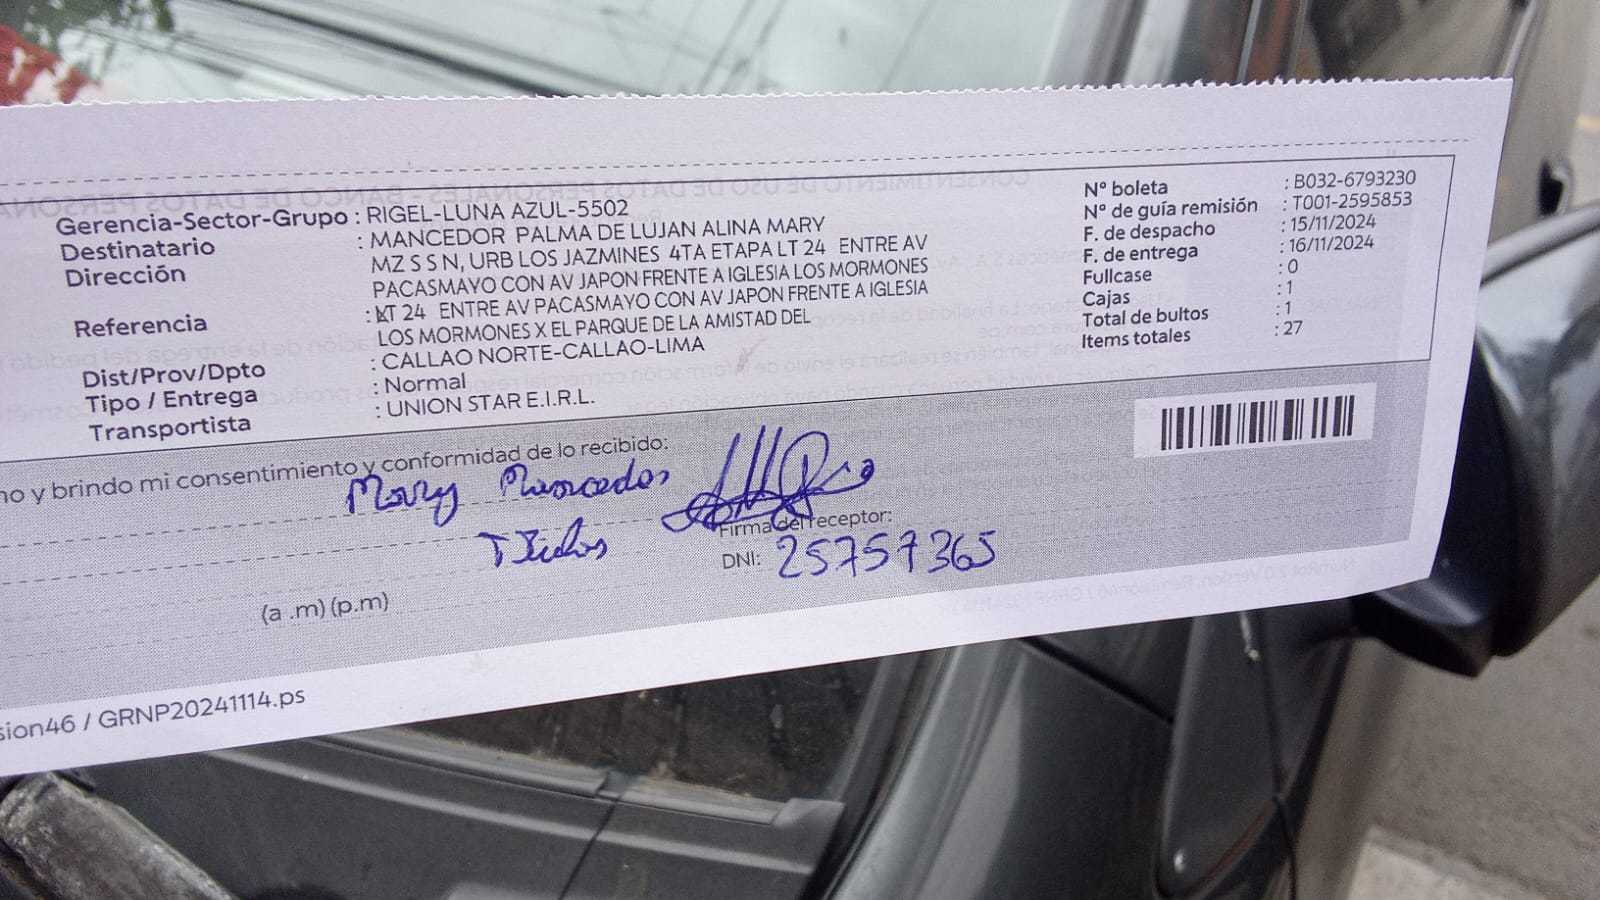 Gerencia-Sector-Grupo : RIGEL-LUNA AZUL-5502
Destinatario : MANCEDOR PALMA DE LUJAN ALINA MARY
Dirección MZ S S N, URB LOS JAZMINES 4TA ETAPA LT 24 ENTRE AV
PACASMAYO CON AV JAPON FRENTE A IGLESIA LOS MORMONES
Referencia : LT 24 ENTRE AV PACASMAYO CON AV JAPON FRENTE A IGLESIA
LOS MORMONES X EL PARQUE DE LA AMISTAD DEL
Dist/Prov/Dpto : CALLAO NORTE-CALLAO-LIMA
Tipo / Entrega : Normal
Transportista : UNION STAR E.I.R.L.
N° boleta : B032-6793230
N° de guía remisión : T001-2595853
F. de despacho : 15/11/2024
F. de entrega : 16/11/2024
Fullcase : 0
Cajas : 1
Total de bultos : 1
Items totales : 27
no y brindo mi consentimiento y conformidad de lo recibido:
Mary Mancedor
Firma del receptor:
DNI: 25757365
(a .m) (p.m)
sion46 / GRNP20241114.ps